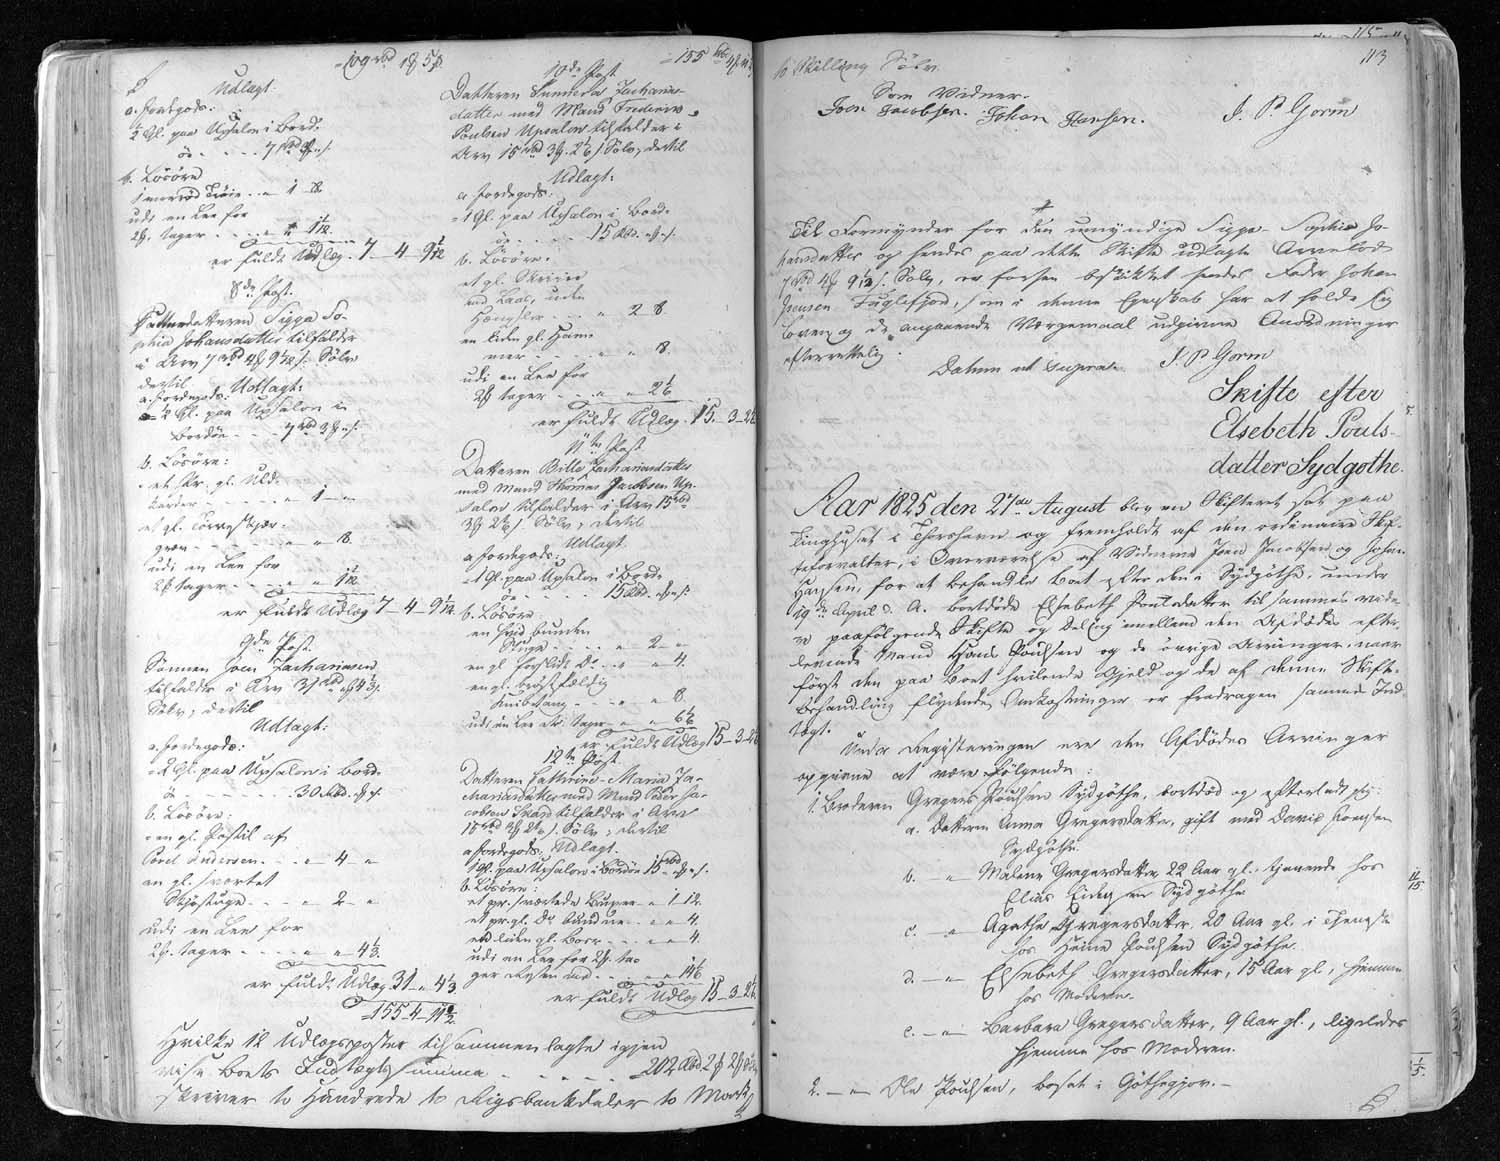 Udlagt:
a. Jordegods:
2 Gl. paa Upsalon i Bord-
b. Løsøre
udi en Koe for
2 β. tager
er fuldt Udlæg. 7 - 4 - 9 1/12
8de Post.
Datterdatteren Sigga So-
phia Johansdatter tilfalder
i Arv 7 rbd 4 β 9 1/12 s. Sølv
dertil
Udlagt:
a. Jordegods:
1/2 Gl. paa Upsalon i
Bordøe
b. Løsøre:
et Pr. gl. Uld-
Karder
udi en Koe for
2 β tager
er fuldt Udlæg 7 - 4 - 9 1/12
9de Post.
Sønnen Joen Zachariasen
tilfalder i Arv 31 rbd 4 1/3 s.
Sølv, dertil
Udlagt:
a. Jordegods:
2 Gl. paa Upsalon i Bord-
øe 30 Rbd.
b. Løsøre:
en gl. Postil af
Poul Andersen - 4 -
en gl. svartet
Udi en Koe for
2 β. tager 4 1/3
er fuldt Udlæg 31 - " 4 1/3
155 - 4 - 11
10de Post
Datteren Sunneva Zacharias-
datter med Mand Frederik
Poulsen Upsalon tilfalder i
Arv 15 rbd 3 β. 2 1/6 s Sølv, dertil
Udlagt:
a Jordegods:
1 Gl. paa Upsalon i Bord-
øe 15 Rbd.
b. Løsøre:
et gl. Skriin
med Laas, uden
Hængsler 2 8
en liden gl. Ham-
mer 8.
udi en Koe for
2 β tager 2 1/6
er fuldt Udlæg 15. - 3 - 2 1/6
11te Post
Datteren Bille Zachariasdatter
med Mand Thomas Jacobsen Up-
salon tilfalder i Arv 15 rbd
3 β 2 1/6 s Sølv, dertil
Udlagt
a Jordegods:
1 Gl. paa Upsalon i Bord-
øe 15 Rbd.
b. Løsøre
en gl. forslidt Do 4.
udi en Koe tager 6 1/6
er fuldt Udlæg 15 - 3 - 2 1/6
12te Post.
Datteren Cathrine Maria Za-
chariasdatter med Mand Peder Ja-
cobsen Skaard tilfalder i Arv
15 rbd 3 β 2 1/6 s. Sølv, dertil
a Jordegods: Udlagt.
1 Gl. paa Upsalon i Bordøe 15 rbd
b. Løsøre:
en liden gl. 4.
udi en Koe for 2 β. ta-
ger 14 1/6
er fuldt Udlæg 15 - 3 - 2 1/6
Hvilke 12 Udlægsposter tilsammenlagte igjen
vise Boets Indtægtssumma 202 Rbd. 2 β
skriver to Hundrede to Rigsbankdaler to Mark
113
to Skilling Sølv.
Som Vidner.
Joen Jacobsen. Johan Hansen. J. P. Gorm
Til Formynder for den umyndige Sigga Sophia Jo-
hansdatter og hendes paa dette Skifte udlagte Arvelod
7 rbd 4 β 9 1/12 s. Sølv, er forhen beskikket hendes Fader Johan
Joensen Fuglefjord, som i denne Egenskab har at holde sig
Loven og de angaaende Værgemaal udgivne Anordninger
efterrettelig.
Datum ut supra. J. P. Gorm
Skifte efter
Elsebeth Pouls-
datter Sydgothe.
Aar 1825 den 27de August blev en Skifteret sat paa
Tinghuset i Thorshavn og fremholdt af den ordinaire Skif-
teforvalter, i Overværelse af Vidnerne Joen Jacobsen og Johan
Hansen, for at behandle Boet efter den i Sydgøthe, under
19de April d. A. bortdøde Elsebeth Poulsdatter til sammes vide-
re paafølgende Skifte og Deling mellem den Afdødes efter-
levende Mand Hans Poulsen og de øvrige Arvinger, naar
først den paa Boet hvilende Gjeld og de af denne Skifte-
behandling flydende Omkostninger er fradragen sammes Ind-
tægt.
Under Registeringen ere den Afdødes Arvinger
opgivne at være Følgende:
1. Broderen Gregers Poulsen Sydgøthe, bortdød og efterladt sig:
a. Datteren Anna Gregersdatter, gift med David Joensen
Sydgøthe
b. - " - Malene Gregersdatter 22 Aar gl. tjenende hos
Elias Sydgøthe
c. - " - Agathe Gregersdatter, 20 Aar gl. i Tjeneste
hos Heine Poulsen Sydgøthe.
d. - " - Elsebeth Gregersdatter, 15 Aar gl, hjemme
hos Moderen.
e. - " - Barbara Gregersdatter, 9 Aar gl., ligeledes
hjemme hos Moderen.
2. - " - Ole Poulsen, bosat i Gøthegjov. -